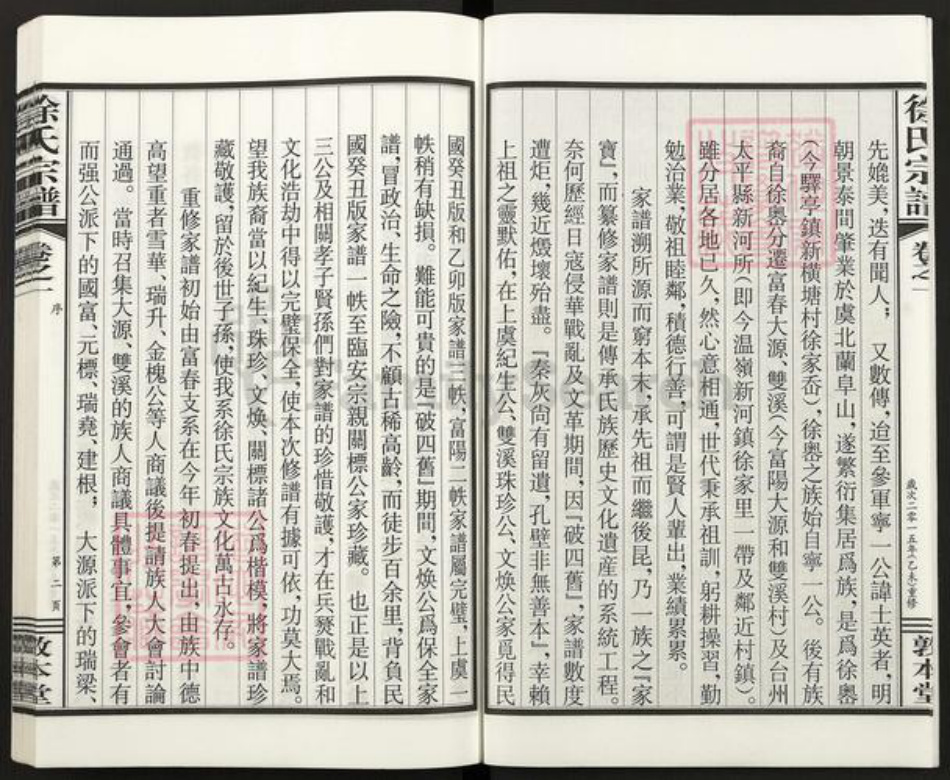 徐氏宗譜
卷之一
序
歲次二零一五年(乙未)重修
敦本堂
先媲美,迭有聞人; 又數傳,迨至參軍寧一公諱士英者,明
朝景泰間肇業於虞北蘭阜山,遂繁衍集居爲族,是爲徐奥
(今驛亭鎮新橫塘村徐家岙),徐奥之族始自寧一公。 後有族
裔自徐奥分遷富春大源、雙溪(今富陽大源和雙溪村)及台州
太平縣新河所(即今温嶺新河鎮徐家里一帶及鄰近村鎮)。
雖分居各地已久,然心意相通,世代秉承祖訓,躬耕操習,勤
勉治業,敬祖睦鄰,積德行善,可謂是賢人輩出,業績累累。
家譜溯所源而窮本末,承先祖而繼後昆,乃一族之『家
寶』,而纂修家譜則是傳承氏族歷史文化遺産的系統工程。
奈何歷經日寇侵華戰亂及文革期間,因『破四舊』,家譜數度
遭炬,幾近燬壞殆盡。 『秦灰尚有留遺,孔壁非無善本』,幸賴
上祖之靈默佑,在上虞紀生公、雙溪珠珍公、文焕公家覓得民
國癸丑版和乙卯版家譜三帙,富陽二帙家譜屬完璧,上虞一
帙稍有缺損。 難能可貴的是『破四舊』期間,文焕公爲保全家
譜,冒政治、生命之險,不顧古稀高齡,而徒步百余里,背負民
國癸丑版家譜一帙至臨安宗親關標公家珍藏。 也正是以上
三公及相關孝子賢孫們對家譜的珍惜敬護,才在兵燹戰亂和
文化浩劫中得以完璧保全,使本次修譜有據可依,功莫大焉。
望我族裔當以紀生、珠珍、文焕、關標諸公爲楷模,將家譜珍
藏敬護,留於後世子孫,使我系徐氏宗族文化萬古永存。
重修家譜初始由富春支系在今年初春提出,由族中德
高望重者雪華、瑞升、金槐公等人商議後提請族人大會討論
通過。 當時召集大源、雙溪的族人商議具體事宜,參會者有
而强公派下的國富、元標、瑞堯、建根; 大源派下的瑞梁、
徐氏宗譜
卷之一
序
第二頁
敦本堂